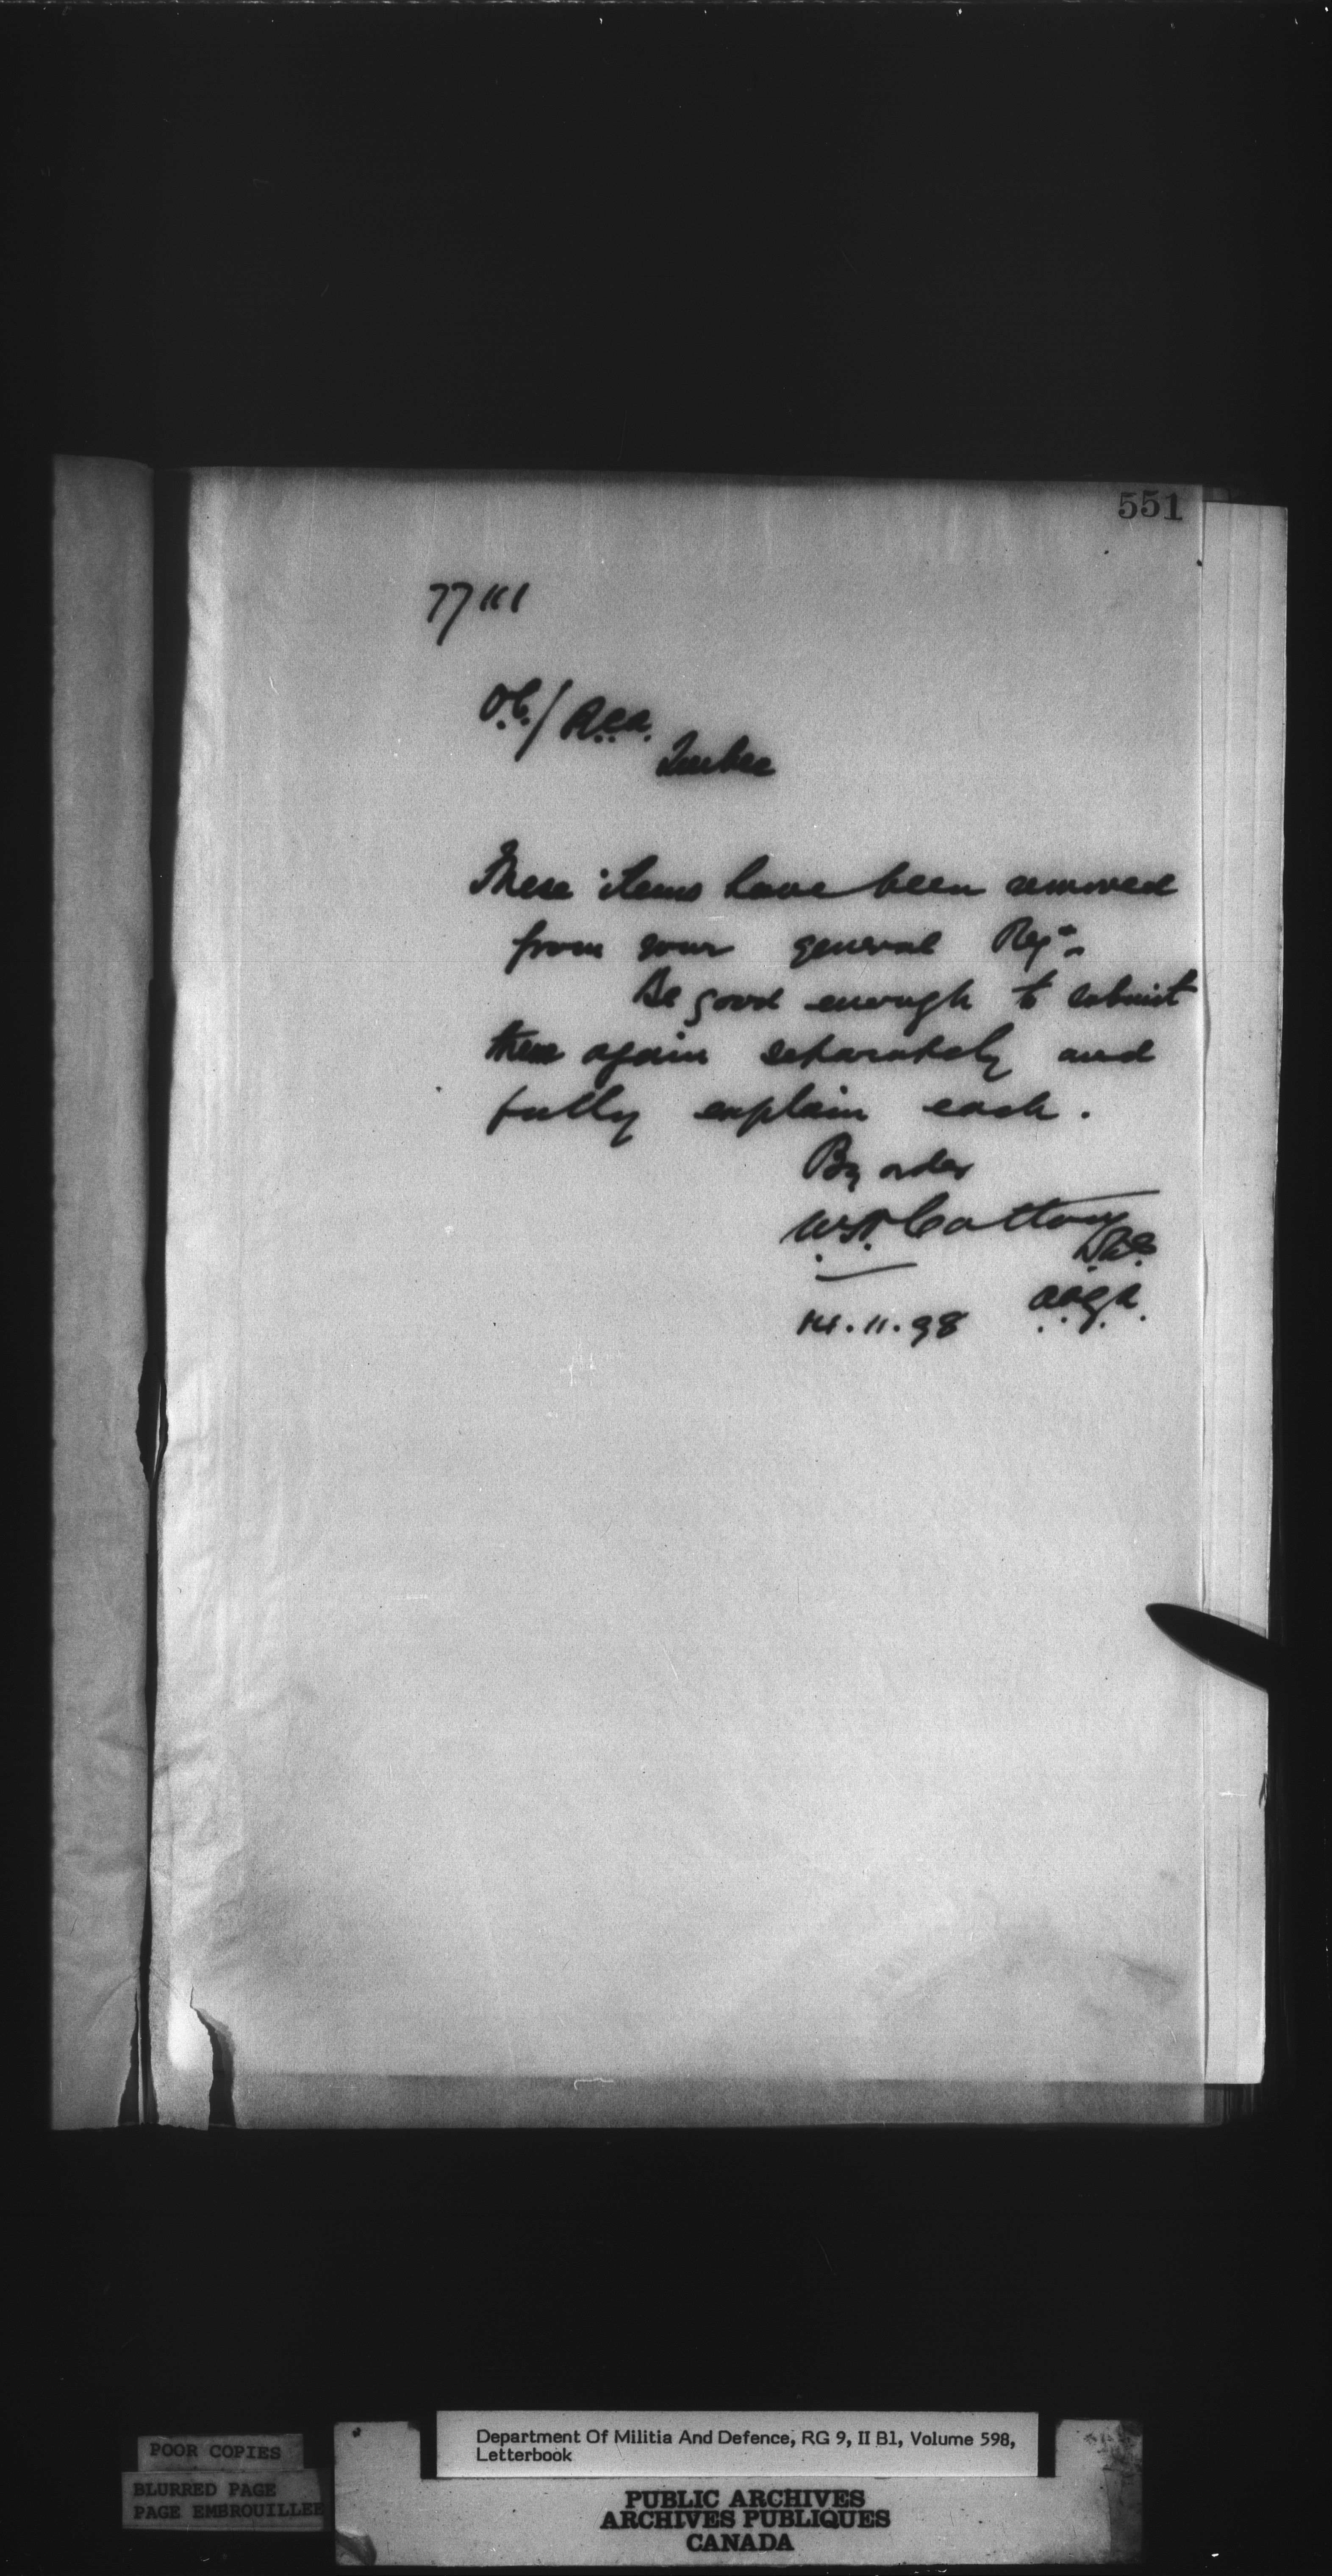 551
77111
O.C./ R.C.A.
Quebec
These items have been removed
from your general Reqn
Be good enough to submit
them again separately and
fully explain each.
By order
W.H. Cotton
A.A.G.A.
14.11.98
POOR COPIES
BLURRED PAGE
PAGE EMBROUILLEE
Department Of Militia And Defence, RG 9, II B1, Volume 598,
Letterbook
PUBLIC ARCHIVES
ARCHIVES PUBLIQUES
CANADA